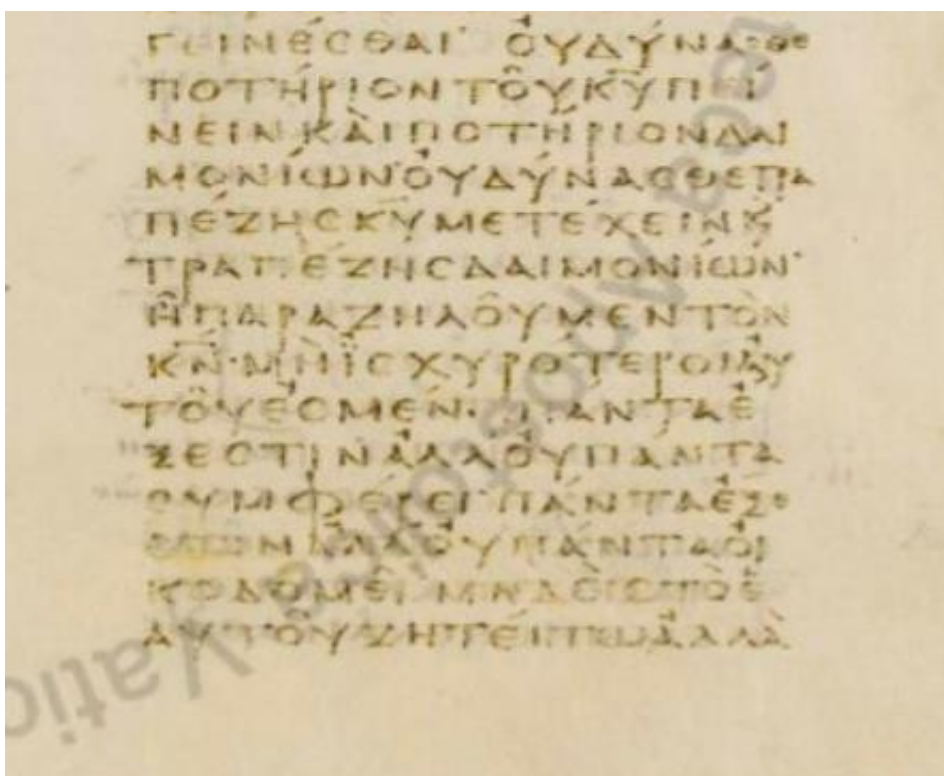 ΓΕΙΝΕΣΘΑΙ ΟΥ ΔΥΝΑΣΘΕ
ΠΟΤΗΡΙΟΝ ΤΟΥ ΚΥ ΠΕΙ
ΝΕΙΝ ΚΑΙ ΠΟΤΗΡΙΟΝ ΔΑΙ
ΜΟΝΙΩΝ ΟΥ ΔΥΝΑΣΘΕ ΠΑ
ΠΕΖΗΣ ΚΥ ΜΕΤΕΧΕΙΝ Κ
ΤΡΑΠΕΖΗΣ ΔΑΙΜΟΝΙΩΝ
Η ΠΑΡΑΖΗΛΟΥΜΕΝ ΤΟΝ
ΚΝ ΜΗ ΙΣΧΥΡΟΤΕΡΟΙ ΑΥ
ΤΟΥ ΕΣΜΕΝ ΠΑΝΤΑ Ε
ΞΕΣΤΙΝ ΑΛΛ ΟΥ ΠΑΝΤΑ
ΣΥΜΦΕΡΕΙ ΠΑΝΤΑ ΕΞΕ
ΣΤΙΝ ΑΛΛ ΟΥ ΠΑΝΤΑ ΟΙ
ΚΟΔΟΜΕΙ ΜΗΔΕΙΣ ΤΟ Ε
ΑΥΤΟΥ ΖΗΤΕΙΤΩ ΑΛΛΑ